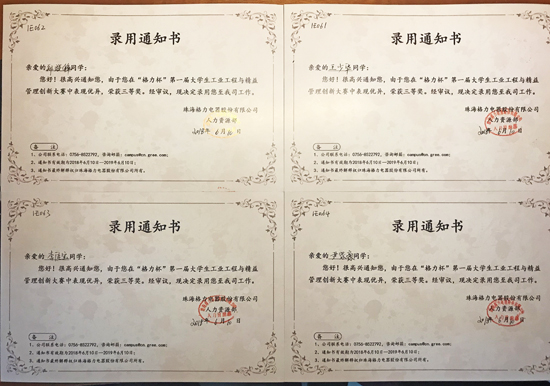 IE062
录用通知书
亲爱的同学:
您好!很高兴通知您,由于您在“格力杯”第一届大学生工业工程与精益
管理创新大赛中表现优异,荣获三等奖。经审议,现决定录用您至我司工作。
珠海格力电器股份有限公司
人力资源部
2018年6月10日
备 注
1、公司联系电话:0756-8522792,咨询邮箱:campus@cn.gree.com;
2、通知书有效期为2018年6月10日—2019年6月10日;
3、通知书最终解释权归珠海格力电器股份有限公司所有。
IE061
录用通知书
亲爱的同学:
您好!很高兴通知您,由于您在“格力杯”第一届大学生工业工程与精益
管理创新大赛中表现优异,荣获三等奖。经审议,现决定录用您至我司工作。
珠海格力电器股份有限公司
人力资源部
2018年6月10日
备 注
1、公司联系电话:0756-8522792,咨询邮箱:campus@cn.gree.com;
2、通知书有效期为2018年6月10日—2019年6月10日;
3、通知书最终解释权归珠海格力电器股份有限公司所有。
IE063
录用通知书
亲爱的同学:
您好!很高兴通知您,由于您在“格力杯”第一届大学生工业工程与精益
管理创新大赛中表现优异,荣获三等奖。经审议,现决定录用您至我司工作。
珠海格力电器股份有限公司
人力资源部
2018年6月10日
备 注
1、公司联系电话:0756-8522792,咨询邮箱:campus@cn.gree.com;
2、通知书有效期为2018年6月10日—2019年6月10日;
3、通知书最终解释权归珠海格力电器股份有限公司所有。
IE064
录用通知书
亲爱的同学:
您好!很高兴通知您,由于您在“格力杯”第一届大学生工业工程与精益
管理创新大赛中表现优异,荣获三等奖。经审议,现决定录用您至我司工作。
珠海格力电器股份有限公司
人力资源部
2018年6月10日
备 注
1、公司联系电话:0756-8522792,咨询邮箱:campus@cn.gree.com;
2、通知书有效期为2018年6月10日—2019年6月10日;
3、通知书最终解释权归珠海格力电器股份有限公司所有。